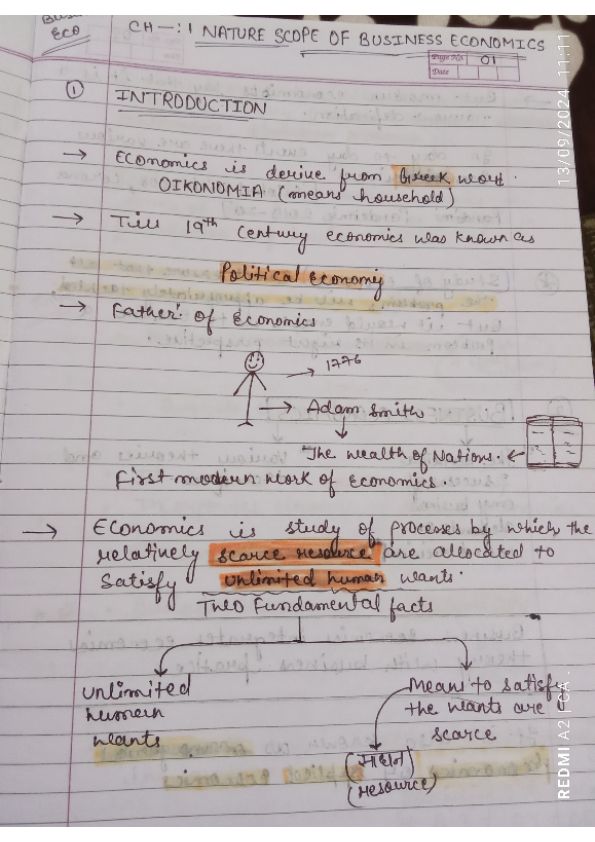 Busi
ECO
CH -: 1 NATURE SCOPE OF BUSINESS ECONOMICS
Page No. 01
Date
① INTRODUCTION
→ Economics is derive from Greek word.
OIKONOMIA (means household)
→ Till 19th century economics was known as
Political Economy
→ Father of Economics
→ 1776
→ Adam Smith
The Wealth of Nations. ←
First modern work of Economics.
→ Economics is study of processes by which the
relatively scarce resource are allocated to
Satisfy unlimited human wants.
Two Fundamental facts
unlimited
human
wants
Means to satisfy
the wants are
scarce
(साधन)
(resource)
13/09/2024 11:11
REDMI A2 | CA.